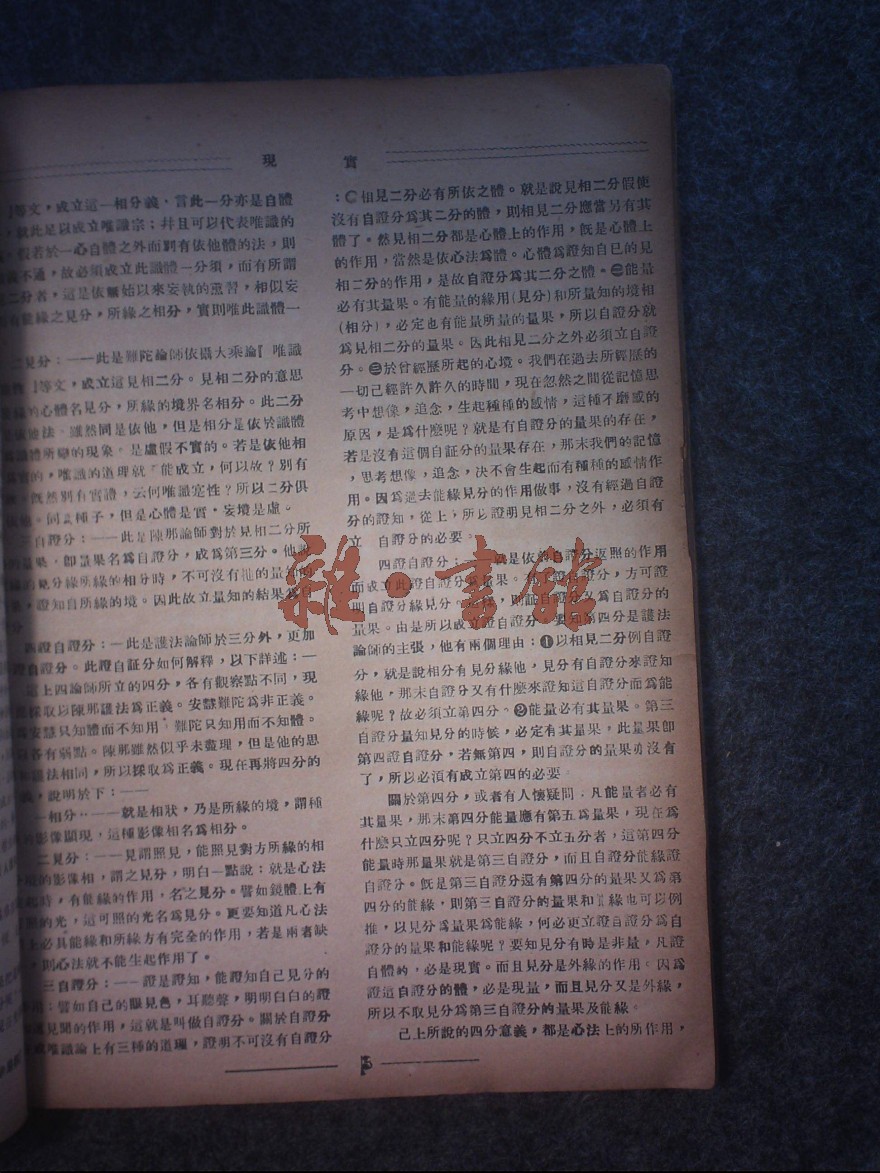 現實
等文，成立這一相分義，言此一分亦是自體
就此足以成立唯識宗；幷且可以代表唯識的
假若於一心自體之外而別有依他體的法，則
不通，故必須成立此識體一分須，而有所謂
二分者，這是依無始以來妄執的薰習，相似妄
有能緣之見分，所緣之相分，實則唯此識體一
二見分：——此是難陀論師依攝大乘論『唯識
』等文，成立這見相二分。見相二分的意思
的心體名見分，所緣的境界名相分。此二分
法，雖然同是依他，但是相分是依於識體
識體所變的現象。是虛假不實的。若是依他相
實的，唯識的道理就能成立，何以故？別有
旣然別有實體，云何唯識定性？所以二分俱
同種子，但是心體是實，妄境是虛。
三自證分：——此是陳那論師對於見相二分所
卽量果名爲自證分，成爲第三分。他說
見分緣所緣的相分時，不可沒有他的量知的
，證知自所緣的境。因此故立量知的結果爲自
四證自證分：—此是護法論師於三分外，更加
證自證分。此證自証分如何解釋，以下詳述：—
這上四論師所立的四分，各有觀察點不同，現
採取以陳那護法爲正義。安慧難陀爲非正義。
安慧只知體而不知用。難陀只知用而不知體。
各有弱點。陳那雖然似乎未盡理，但是他的思
護法相同，所以採取爲正義。現在再將四分的
義，說明於下：——
一相分：——就是相狀，乃是所緣的境，謂種
影像顯現，這種影像相名爲相分。
二見分：——見謂照見，能照見對方所緣的相
的影像相，謂之見分，明白一點說：就是心法
起時，有能緣的作用，名之見分。譬如鏡體上有
照的光，這可照的光名爲見分。更要知道凡心法
上必具能緣和所緣方有完全的作用，若是兩者缺
，則心法就不能生起作用了。
三自證分：——證是證知，能證知自己見分的
譬如自己的眼見色，耳聽聲，明明白白的證
見聞的作用，這就是叫做自證分。關於自證分
成唯識論上有三種的道理，證明不可沒有自證分
：㊀相見二分必有所依之體。就是說見相二分假使
沒有自證分爲其二分的體，則相見二分應當另有其
體了。然見相二分都是心體上的作用，旣是心體上
的作用，當然是依心法爲體。心體爲證知自巳的見
相二分的作用，是故自證分爲其二分之體。㊁能量
必有其量果。有能量的緣用(見分)和所量知的境相
(相分)，必定也有能量所量的量果，所以自證分就
爲見相二分的量果。因此相見二分之外必須立自證
分。㊂於曾經歷所起的心境。我們在過去所經歷的
一切已經許久許久的時間，現在忽然之間從記憶思
考中想像，追念，生起種種的感情，這種不磨滅的
原因，是爲什麼呢？就是有自證分的量果的存在，
若是沒有這個自証分的量果存在，那末我們的記憶
，思考想像，追念，決不會生起而有種種的感情作
用。因爲過去能緣見分的作用做事，沒有經過自證
分的證知，從上，所以證明見相二分之外，必須有
立 自證分的必要。
四證自證分：——就是依第自證分返照的作用
而成立此證自證分 量果。 證自證分，方可證
明自證分緣見分。這樣，則証自證分又爲自證分的
量果。由是所以成立證自證分。要知第四分是護法
論師的主張，他有兩個理由：❶以相見二分例自證
分，就是說相分有見分緣他，見分有自證分來證知
緣他，那末自證分又有什麽來證知這自證分而爲能
緣呢？故必須立第四分。❷能量必有其量果。第三
自證分量知見分的時候，必定有其量果，此量果卽
第四證自證分，若無第四，則自證分的量果勇沒有
了，所以必須有成立第四的必要。
關於第四分，或者有人懷疑問：凡能量者必有
其量果，那末第四分能量應有第五爲量果，現在爲
什麽只立四分呢？只立四分不立五分者，這第四分
能量時那量果就是第三自證分，而且自證分能緣證
自證分。旣是第三自證分還有第四分的量果又爲第
四分的能緣，則第三自證分的量果和能緣也可以例
推，以見分爲量果爲能緣，何必更立證自證分爲自
證分的量果和能緣呢？要知見分有時是非量，凡證
自體的，必是現實。而且見分是外緣的作用。因爲
證這自證分的體，必是現量，而且見分又是外緣，
所以不取見分爲第三自證分的量果及能緣。
己上所說的四分意義，都是心法上的所作用，
雜·書館